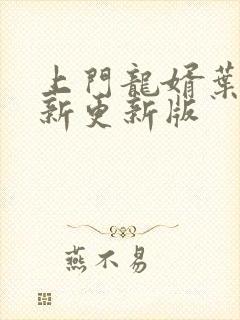 上門龍婿葉
新更新版
燕不易